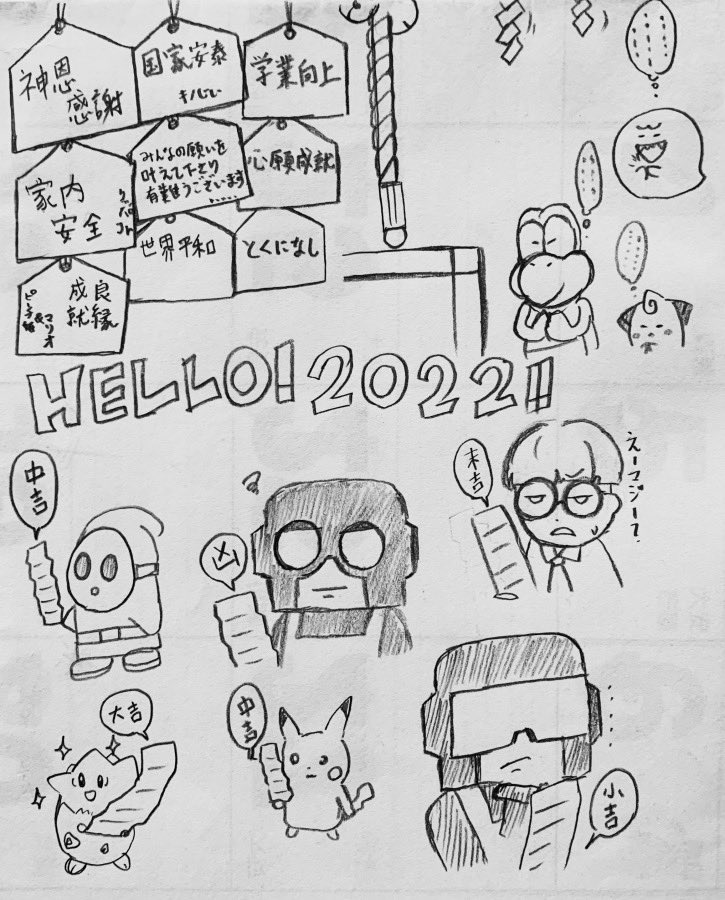 神恩
感謝
国家安泰
キノピコ
学業向上
家内
安全
クッパJr.
みんなの願いを
叶えて下さり
有難うございます
……
心願成就
世界平和
とくになし
良縁
成就
マリオ
&
ピーチ姫
HELLO! 2022!!
中吉
凶
末吉
えーマジーて
大吉
中吉
小吉